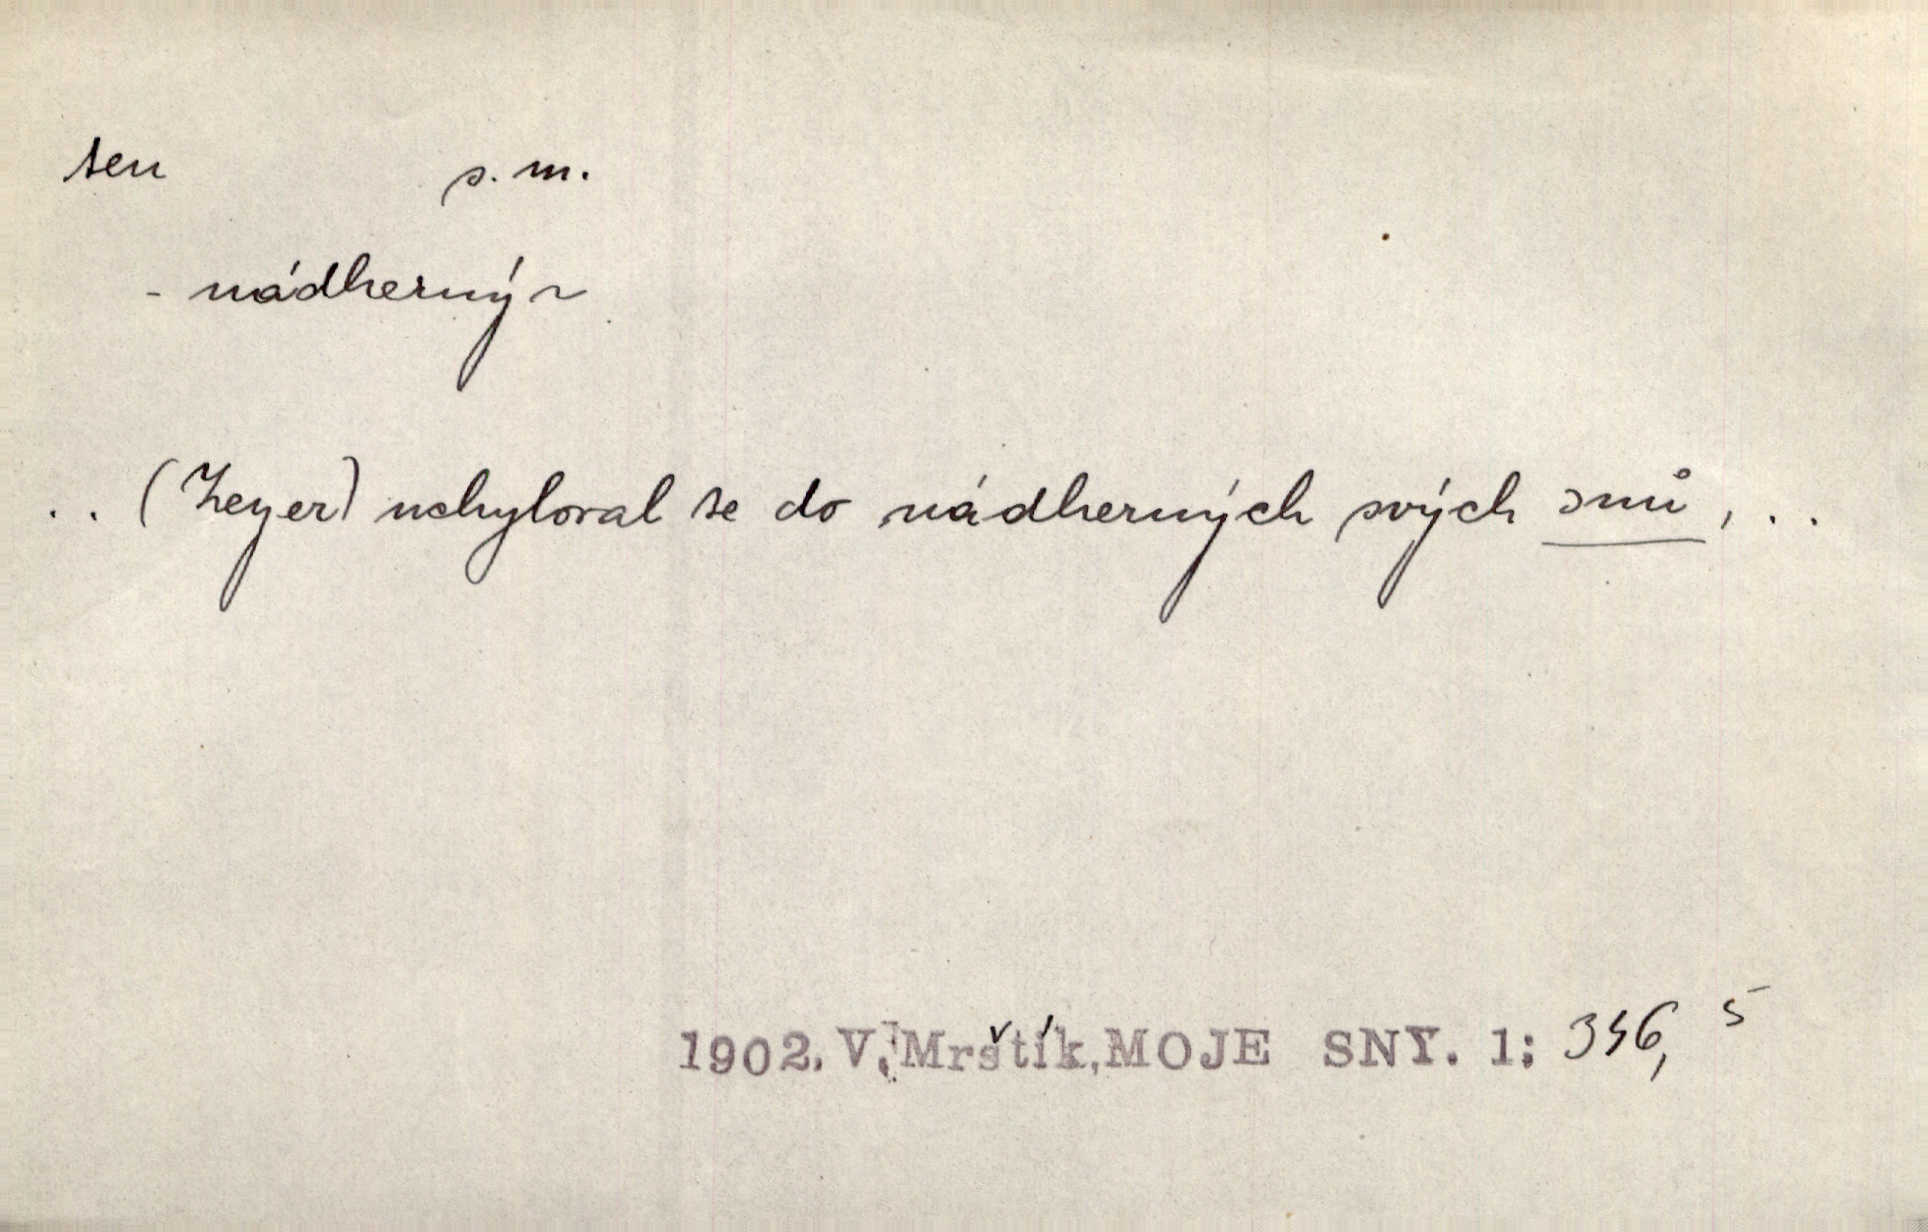 sen s. m.
- nádherný ~
. . (Zeyer) uchyloval se do nádherných svých snů, . .
1902. V. Mrštík, MOJE SNY. 1: 346, 5